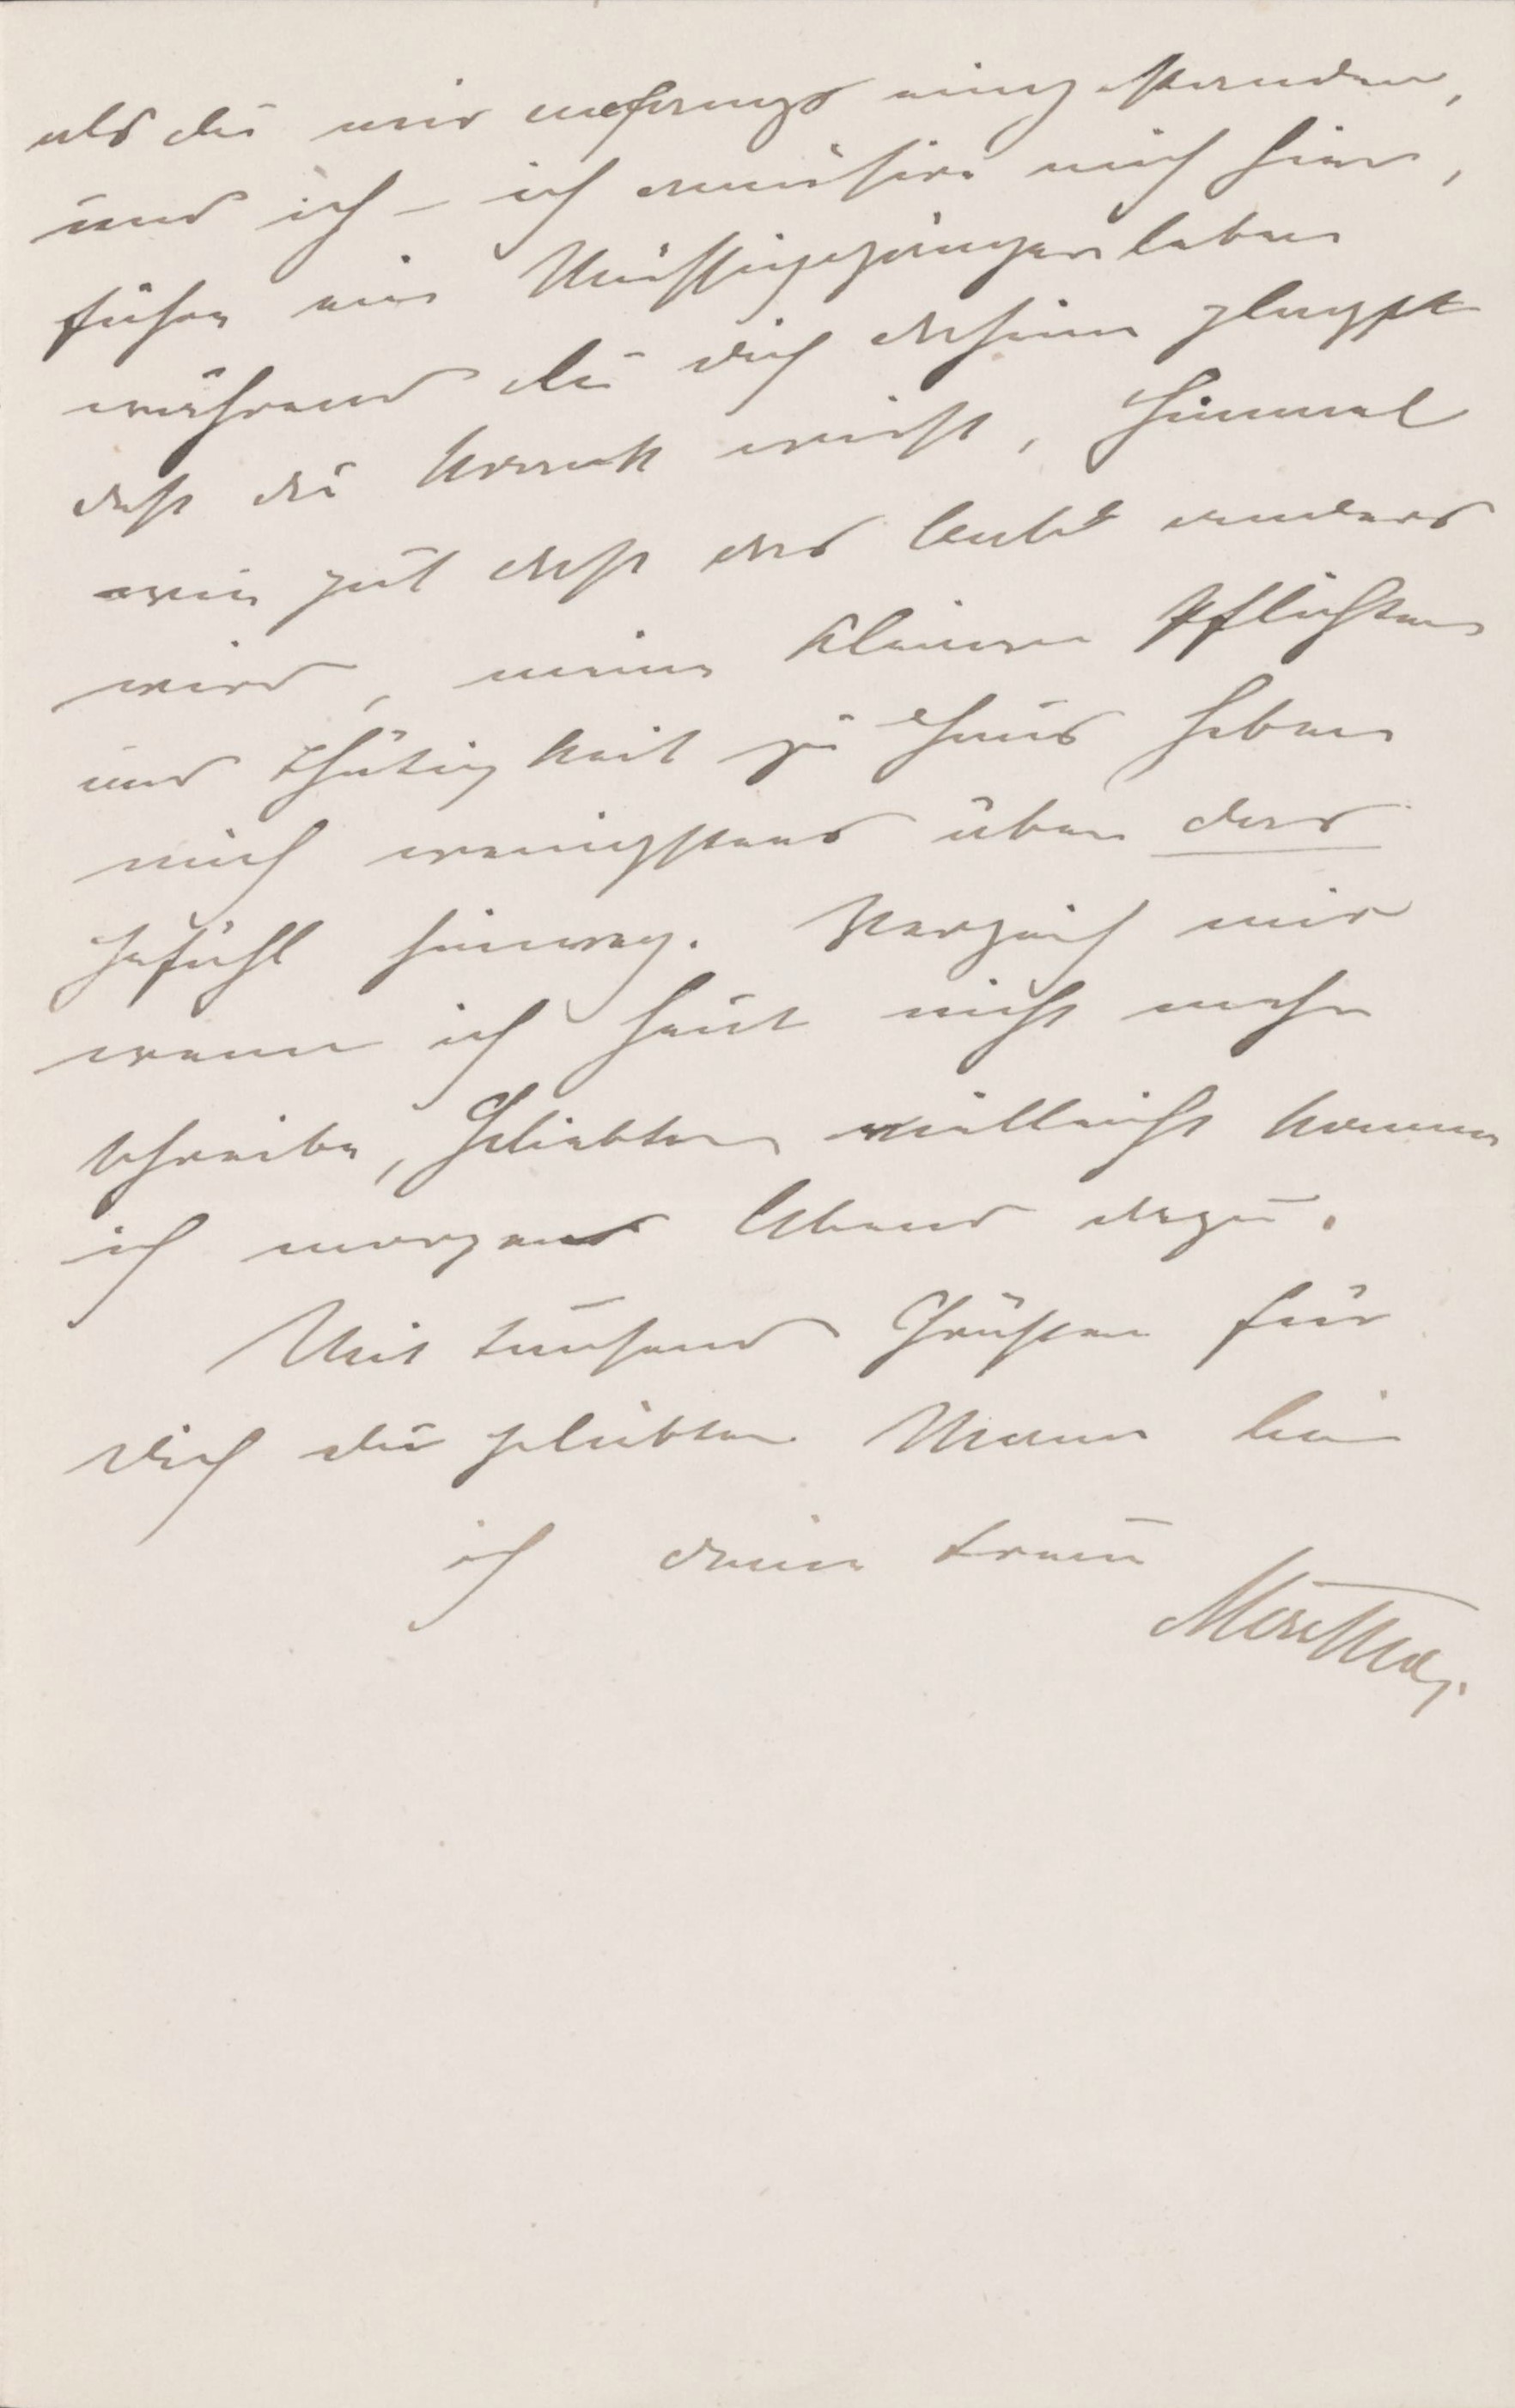 als du mir anfangs eingestanden,
und ich – ich amüsire mich hier,
führe ein Müssiggängerleben
während du dich daheim plagst
dass du krank wirst, Himmel
wie gut dass das bald anders
wird, meine kleinen Pflichten
und Thätigkeit zu Haus heben
mich wenigstens über das
Gefühl hinweg. Verzeih mir
wenn ich heut nicht mehr
schreibe, Geliebter vielleicht komme
ich morgen Abend dazu.
Mit tausend Grüssen für
dich du geliebter Mann bin
ich deine treue